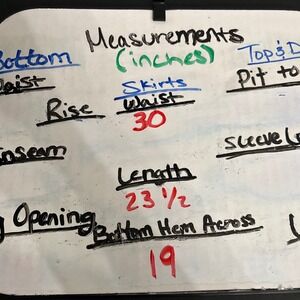 Measurements
(inches)
Bottom
Skirts
Top's D
Waist
Waist
Pit to
Rise
30
Inseam
Sleeve
Length
23 1/2
Opening
Bottom Hem Across
19